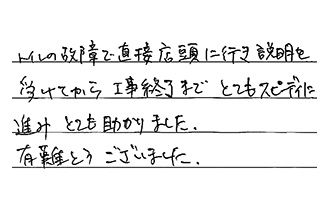 トイレの故障で直接店頭に行き説明を
受けてから 工事終了まで とてもスピーディに
進み とても助かりました.
有難とう ございました.